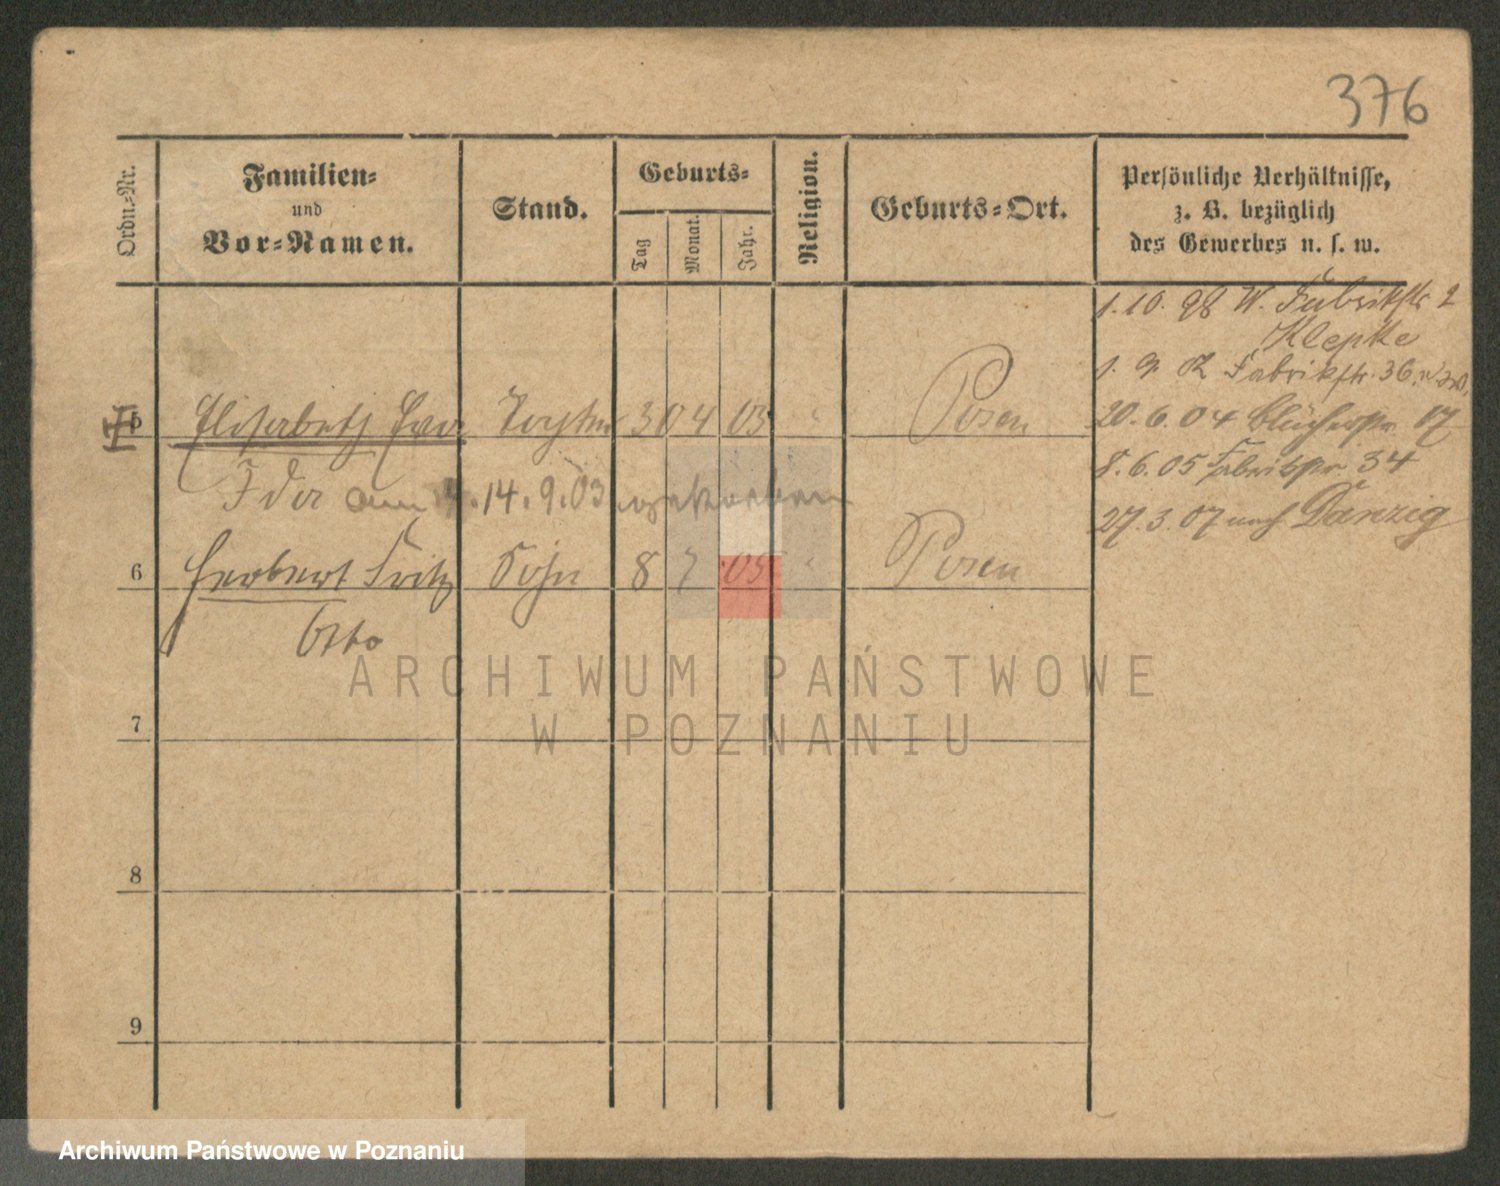 376
Ordn.-Nr.
Familien-
und
Vor-Namen.
Stand.
Geburts-
Tag
Monat.
Jahr.
Religion.
Geburts-Ort.
Persönliche Verhältnisse,
z. B. bezüglich
des Gewerbes u. s. w.
1.10.98 W. Fabrikstr 2
Klepke
1. 9. 02 Fabrikstr. 36
20.6.04 Blücherstr 17
8.6.05 Fabrikstr 34
27.3.07 nach Danzig
5 Elisabeth Eva Tochter 30 4 03 Posen
Ida am 14.9.03 gestorben
6 Herbert Fritz Sohn 8 7 05 Posen
Otto
7
8
9
ARCHIWUM PAŃSTWOWE
W POZNANIU
Archiwum Państwowe w Poznaniu